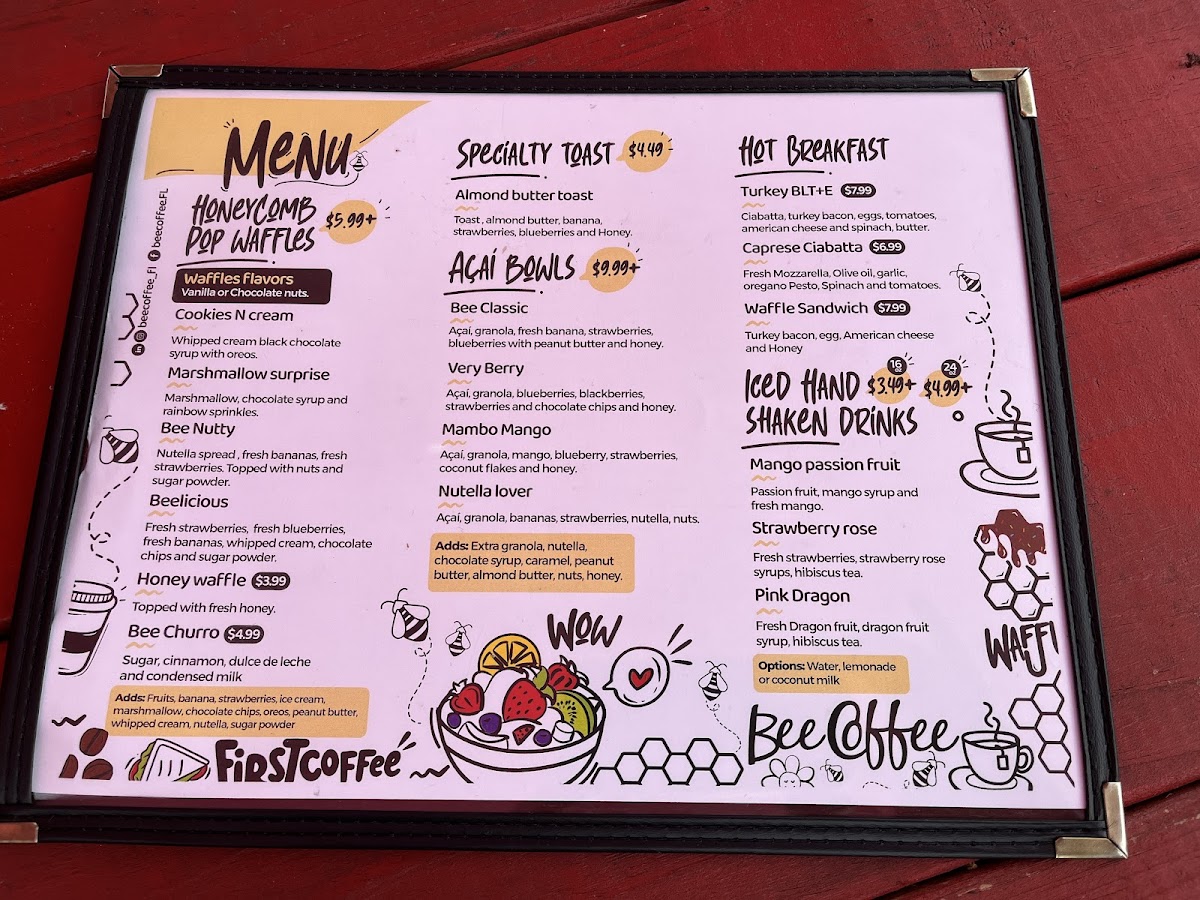 MENU
beecoffee_Fl beecoffee.FL
HONEYCOMB
POP WAFFLES
$5.99+
Waffles flavors
Vanilla or Chocolate nuts.
Cookies N cream
Whipped cream black chocolate
syrup with oreos.
Marshmallow surprise
Marshmallow, chocolate syrup and
rainbow sprinkles.
Bee Nutty
Nutella spread , fresh bananas, fresh
strawberries. Topped with nuts and
sugar powder.
Beelicious
Fresh strawberries, fresh blueberries,
fresh bananas, whipped cream, chocolate
chips and sugar powder.
Honey waffle $3.99
Topped with fresh honey.
Bee Churro $4.99
Sugar, cinnamon, dulce de leche
and condensed milk
Adds: Fruits, banana, strawberries, ice cream,
marshmallow, chocolate chips, oreos, peanut butter,
whipped cream, nutella, sugar powder
FIRST COFFEE
SPECIALTY TOAST $4.49
Almond butter toast
Toast , almond butter, banana,
strawberries, blueberries and Honey.
AÇAÍ BOWLS $9.99+
Bee Classic
Açaí, granola, fresh banana, strawberries,
blueberries with peanut butter and honey.
Very Berry
Açaí, granola, blueberries, blackberries,
strawberries and chocolate chips and honey.
Mambo Mango
Açaí, granola, mango, blueberry, strawberries,
coconut flakes and honey.
Nutella lover
Açaí, granola, bananas, strawberries, nutella, nuts.
Adds: Extra granola, nutella,
chocolate syrup, caramel, peanut
butter, almond butter, nuts, honey.
WOW
HOT BREAKFAST
Turkey BLT+E $7.99
Ciabatta, turkey bacon, eggs, tomatoes,
american cheese and spinach, butter.
Caprese Ciabatta $6.99
Fresh Mozzarella, Olive oil, garlic,
oregano Pesto, Spinach and tomatoes.
Waffle Sandwich $7.99
Turkey bacon, egg, American cheese
and Honey
ICED HAND
SHAKEN DRINKS
16 oz $3.49+
24 oz $4.99+
Mango passion fruit
Passion fruit, mango syrup and
fresh mango.
Strawberry rose
Fresh strawberries, strawberry rose
syrups, hibiscus tea.
Pink Dragon
Fresh Dragon fruit, dragon fruit
syrup, hibiscus tea.
Options: Water, lemonade
or coconut milk
WAFFl
Bee Coffee